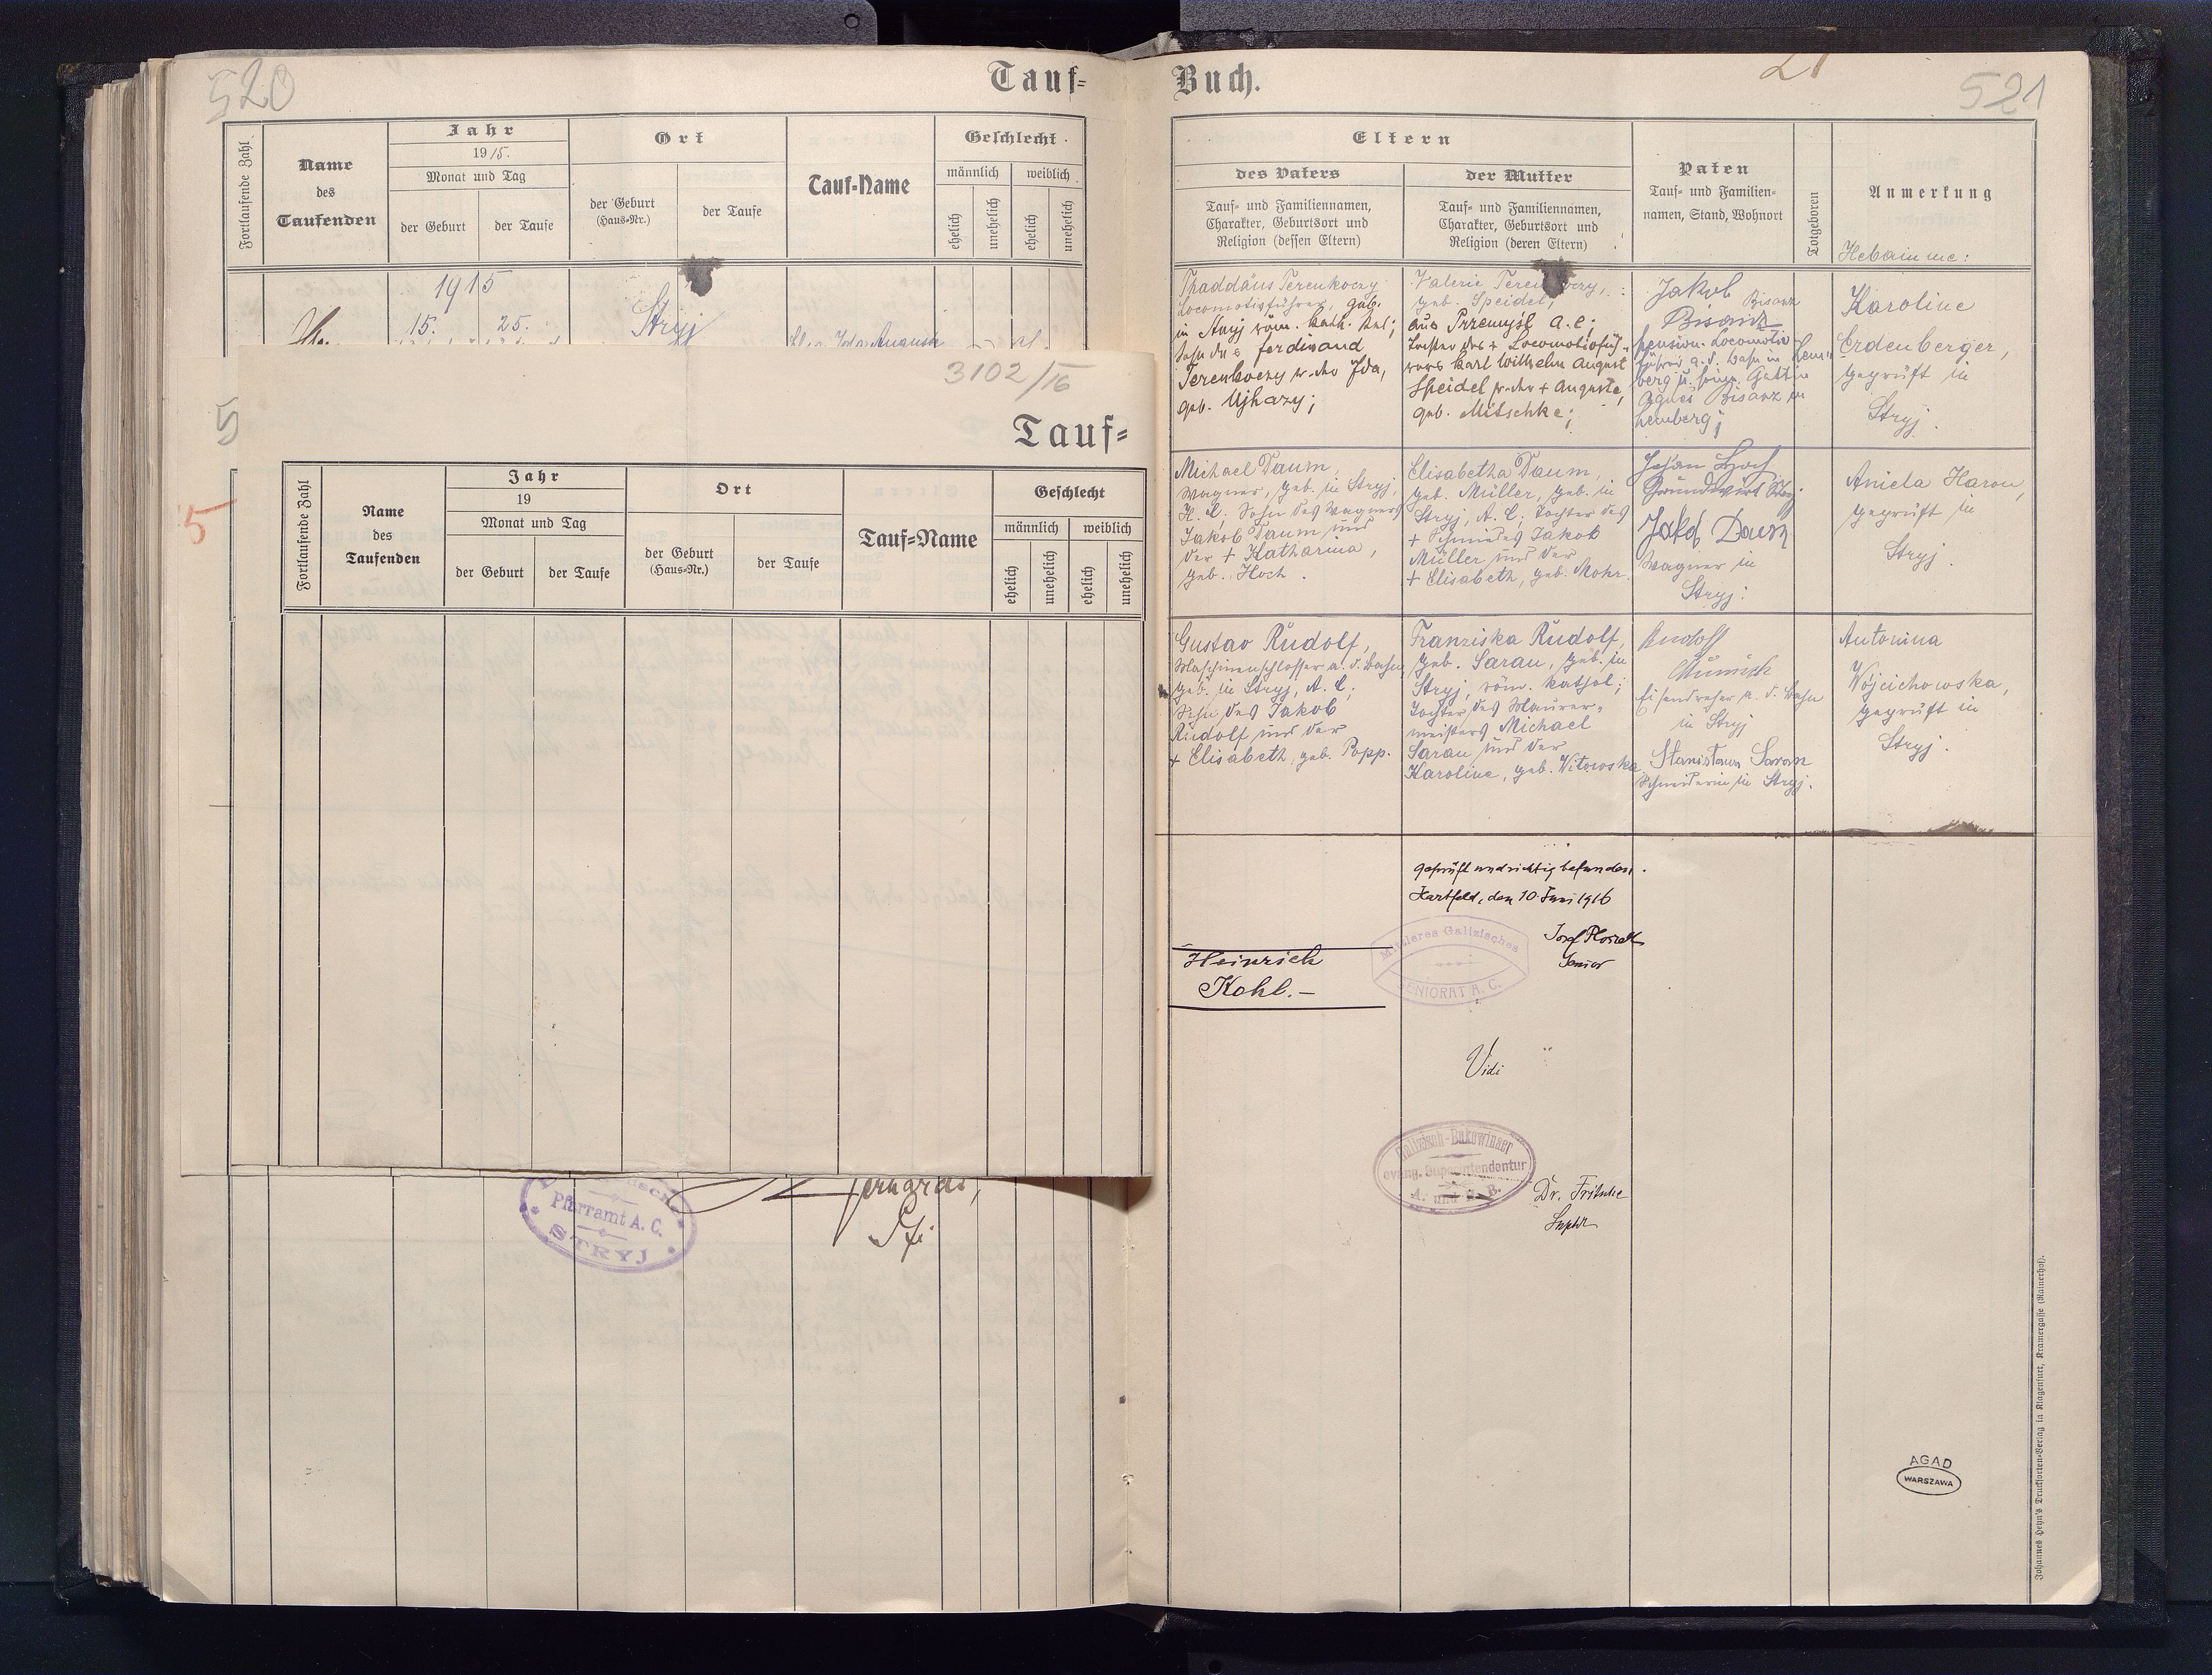 520
Tauf=
Fortlaufende Zahl
Name
des
Taufenden
Jahr
1915.
Monat und Tag
der Geburt
der Taufe
Ort
der Geburt
(Haus=Nr.)
der Taufe
Tauf=Name
Geschlecht
männlich
weiblich
ehelich
unehelich
ehelich
unehelich
1915
15. 25.
Stryj
3102/16
5
Tauf=
5
Fortlaufende Zahl
Name
des
Taufenden
Jahr
19
Monat und Tag
der Geburt
der Taufe
Ort
der Geburt
(Haus=Nr.)
der Taufe
Tauf=Name
Geschlecht
männlich
weiblich
ehelich
unehelich
ehelich
unehelich
Pfarramt A. C.
STRYJ
Buch.
21
521
Eltern
des Vaters
Tauf= und Familiennamen,
Charakter, Geburtsort und
Religion (dessen Eltern)
der Mutter
Tauf= und Familiennamen,
Charakter, Geburtsort und
Religion (deren Eltern)
Paten
Tauf= und Familien=
namen, Stand, Wohnort
Totgeboren
Anmerkung
Hebamme:
Thaddäus Terenkoczy
Locomotivführer, geb.
in Stryj röm. kath. Rel;
Sohn des Ferdinand
Terenkoczy u. der Ida,
geb. Ujhazy;
Valerie
geb. Speidel,
aus Przemyśl A. C;
Tochter des + Locomotivfüh-
rers Karl Wilhelm August
Speidel u. der + Auguste,
geb. Mitschke;
Jakob Bisanz
Bisanz
pension. Locomotiv
führer a. d. Bahn in Lem-
berg u. seine Gattin
Agnes Bisanz in
Lemberg;
Karoline
Erdenberger,
geprüft in
Stryj.
Michael Daum,
Wagner, geb. in Stryj,
H. C; Sohn des Wagners
Jakob Daum und
der + Katharina,
geb. Hoch.
Elisabetha Daum,
geb. Müller, geb. in
Stryj, A. C; Tochter des
+ Schmiedes Jakob
Müller und der
+ Elisabeth, geb. Mohr.
Johan Hoch
Grundwirt Stryj
Jakob Daum
Wagner in
Stryj.
Aniela Haron,
geprüft in
Stryj.
Gustav Rudolf,
Maschinenschlosser a. d. Bahn,
geb. in Stryj, A. C;
Sohn des Jakob
Rudolf und der
+ Elisabeth, geb. Popp.
Franziska Rudolf,
geb. Saran, geb. in
Stryj, röm. kathol;
Tochter des Maurer-
meisters Michael
Saran und der
Karoline, geb. Witowska
Rudolf
Eisendreher a. d. Bahn
in Stryj
Stanisława Saran
Schneiderin in Stryj.
Antonina
Wójcichowska,
geprüft in
Stryj.
Geprüft und richtig befunden.
Hartfeld, den 10. Juni 1916
Mittleres Galizisches
SENIORAT A. C.
Josef
Senior
Heinrich
Kohl.—
Vidi
Galizisch-Bukowinaer
evang. Superintendentur
A. und H. B.
Dr. Fritsche
Suptdt
AGAD
WARSZAWA
Johannes Heyn's Drucksorten=Verlag in Klagenfurt, Kramergasse (Rainerhof).